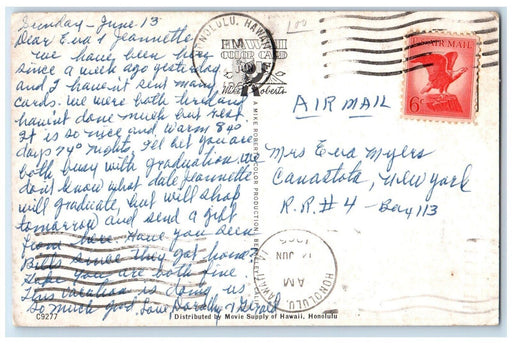 Sunday - June. 13
Dear Eva & Jeannette,
We have been here
since a week ago yesterday
and I havent sent many
cards. We were both tired and
havin't done much but rest
It is so nice and warm 84°
days 74° nights. I'll bet you are
both busy with graduation. We
dont know what date Jeannette
will graduate, but will shop
tomorrow and send a gift
from here. Have you seen
Bills since they got home?
Hope you are both fine
This vacation is doing us
so much good. Love Dorothy & Gerald
C9277
Distributed by Movie Supply of Hawaii, Honolulu
A MIKE ROBERTS COLOR PRODUCTION, BERKELEY
HONOLULU, HAWAII
HAWAII
COLOR CARD
Mike Roberts
100
U.S. AIR MAIL
6¢
AIR MAIL
Mrs Eva Myers
Canastota, New York
R.R. #4 - Box 113
HONOLULU, HAWAII
AM
JUN